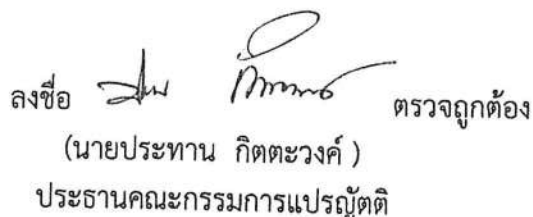 ลงชื่อ ตรวจถูกต้อง
(นายประทาน กิตตะวงค์ )
ประธานคณะกรรมการแปรญัตติ